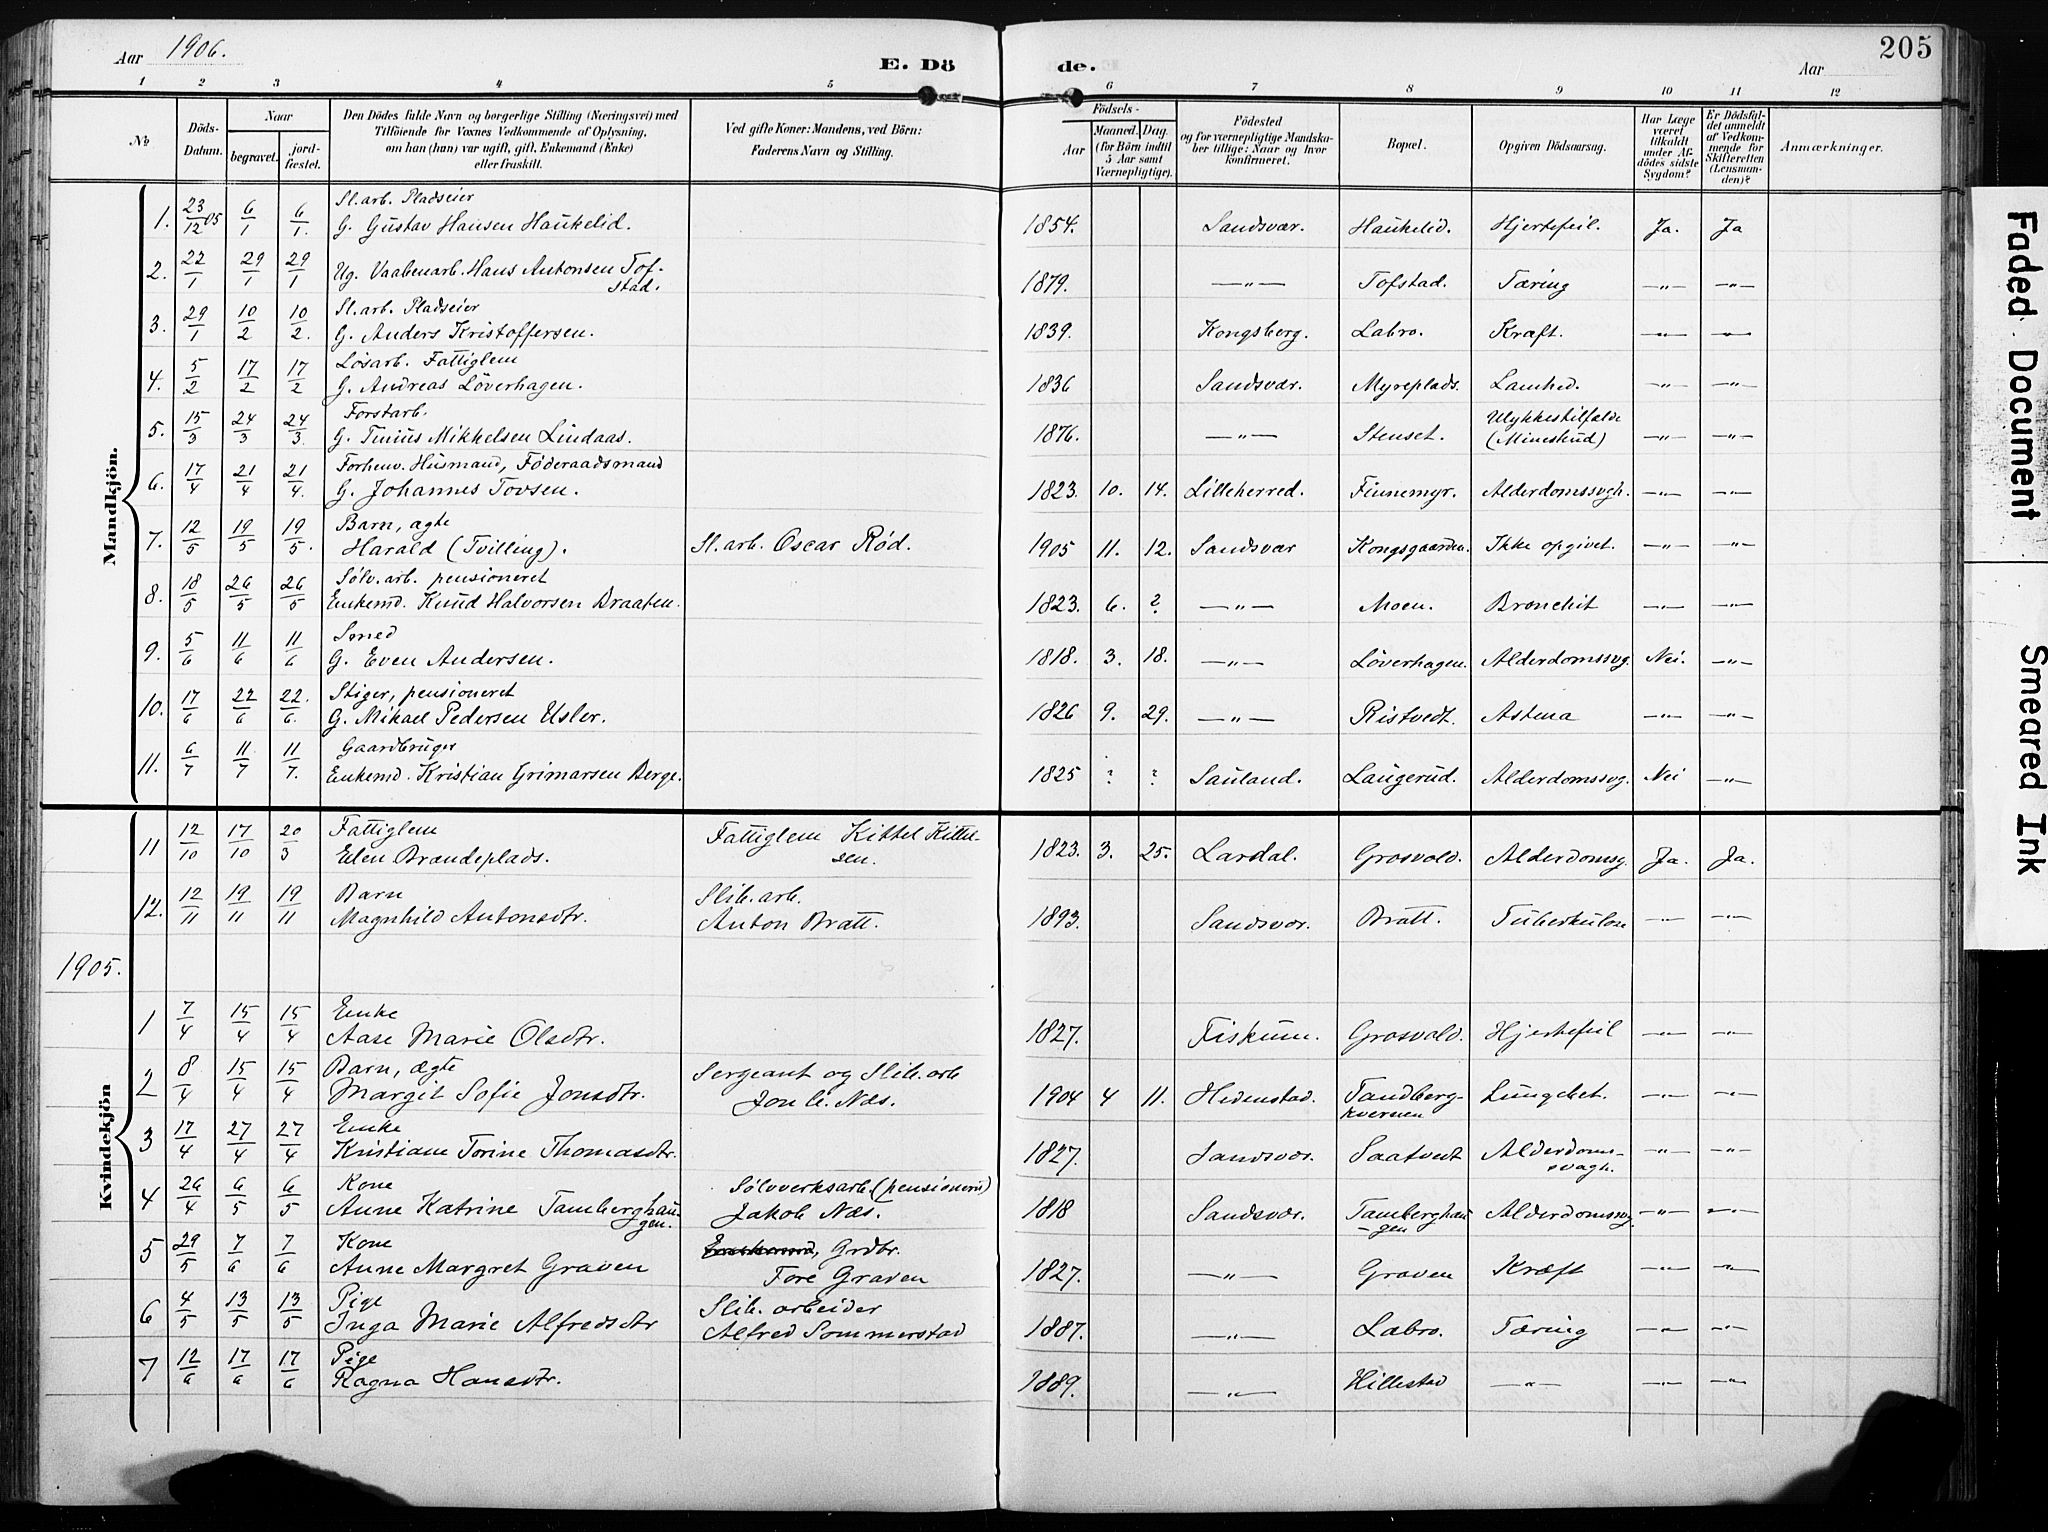 Aar 1906.
E. Dö de.
Aar
205
1 2 3 4 5 6 7 8 9 10 11 12
No
Döds-Datum.
Naar
begravet.
jord-fæstet.
Den Dödes fulde Navn og borgerlige Stilling (Næringsvei) med
Tilföiende for Voxnes Vedkommende af Oplysning,
om han (hun) var ugift, gift, Enkemand (Enke)
eller fraskilt.
Ved gifte Koner: Mandens, ved Börn:
Faderens Navn og Stilling.
Födsels-
Aar
Maaned. Dag.
(for Börn indtil
5 Aar samt
Værnepligtige).
Födested
og for værnepligtige Mandska-
ber tillige: Naar og hvor
konfirmeret.
Bopæl.
Opgiven Dödsaarsag.
Har Læge
været
tilkaldt
under Af-
dödes sidste
Sygdom?
Er Dödsfal-
det anmeldt
af Vedkom-
mende for
Skifteretten
(Lensman-
den)?
Anmærkninger.
Mandkjön.
Sl.arb. Pladseier
1. 23/12 05 6/1 6/1. G. Gustav Hansen Haukelid. 1854. Sandsvær. Haukelid. Hjertefeil. Ja. Ja
2. 22/1 29/1 29/1 Ug. Vaabenarb. Hans Antonsen Tof-
stad. 1879. —"— Tofstad. Tæring —"— —"—
Sl.arb. Pladseier
3. 29/1 10/2 10/2. G. Anders Kristoffersen. 1839. Kongsberg. Labro. Kræft. —"— —"—
Løsarb. Fattiglem
4. 5/2 17/2 17/2 G. Andreas Löverhagen. 1836 Sandsvær. Myreplads. Lamhed. —"— —"—
Forstarb.
5. 15/3 24/3 24/3. G. Tinius Mikkelsen Lindaas. 1876. —"— Stenset. Ulykkestilfælde
(Mineskud) —"— —"—
Forhenv. Husmand, Föderaadsmand
6. 17/4 21/4 21/4. G. Johannes Tovsen. 1823. 10. 14. Lilleherred. Finnemyr. Alderdomssvgh. —"— —"—
Barn, ægte
7. 12/5 19/5 19/5. Harald (Tvilling). Sl.arb. Oscar Rød. 1905 11. 12. Sandsvær Kongsgaarden. Ikke opgivet. —"— —"—
Sølv.arb. pensioneret
8. 18/5 26/5 26/5 Enkemd. Knud Halvorsen Braaten. 1823. 6. ? —"— Moen. Bronchit —"— —"—
Smed
9. 5/6 11/6 11/6 G. Even Andersen. 1818. 3. 18. —"— Löverhagen. Alderdomssvg. Nei. —"—
Stiger, pensioneret
10. 17/6 22/6 22/6. G. Mikael Pedersen Usler. 1826 9. 29. —"— Ristvedt. Astma —"— —"—
Gaardbruger
11. 6/7 11/7 11/7. Enkemd. Kristian Grimarsen Berge. 1825 ? ? Sauland. Laugerud. Alderdomssvg. Nei —"—
Kvindekjön
Fattiglem
11 12/10 17/10 20/3 Elen Brændeplads. Fattiglem Kittel Kittel-
sen. 1823. 3. 25. Lardal. Grosvold. Alderdomsvg. Ja. Ja.
Barn
12. 12/11 19/11 19/11 Magnhild Antonsdtr. Slib.arb.
Anton Bratt. 1893. Sandsvær. Bratt. Tuberkulose —"— —"—
1905.
Enke
1 7/4 15/4 15/4 Aase Marie Olsdtr. 1827. Fiskum. Grosvold. Hjertefeil —"— —"—
Barn, ægte
2 8/4 15/4 15/4 Margit Sofie Jonsdtr. Sergeant og Slib.arb
Jon C. Næs. 1904 4 11. Hedenstad. Tandberg-
kvernen Lungebet. —"— —"—
Enke
3 17/4 27/4 27/4 Kristiane Torine Thomasdtr. 1827. Sandsvær. Saatvedt Alderdoms-
svagh. —"— —"—
Kone
4 26/4 6/5 6/5 Anne Katrine Tamberghau-
gen. Sølvverksarb. (pensioneret)
Jakob Næs. 1818 Sandsvær. Tamberghau-
gen Alderdomssvg —"— —"—
Kone
5 29/5 7/6 7/6 Anne Margret Graven Grdbr.
Tore Graven 1827. —"— Graven Kræft —"— —"—
Pige
6 4/5 13/5 13/5 Inga Marie Alfredsdtr Slib.arbeider
Alfred Sommerstad 1887. —"— Labro. Tæring —"— —"—
Pige
7 12/6 17/6 17/6 Ragna Hansdtr. 1889. —"— Hillestad —"— —"— —"—
Faded Document
Smeared Ink